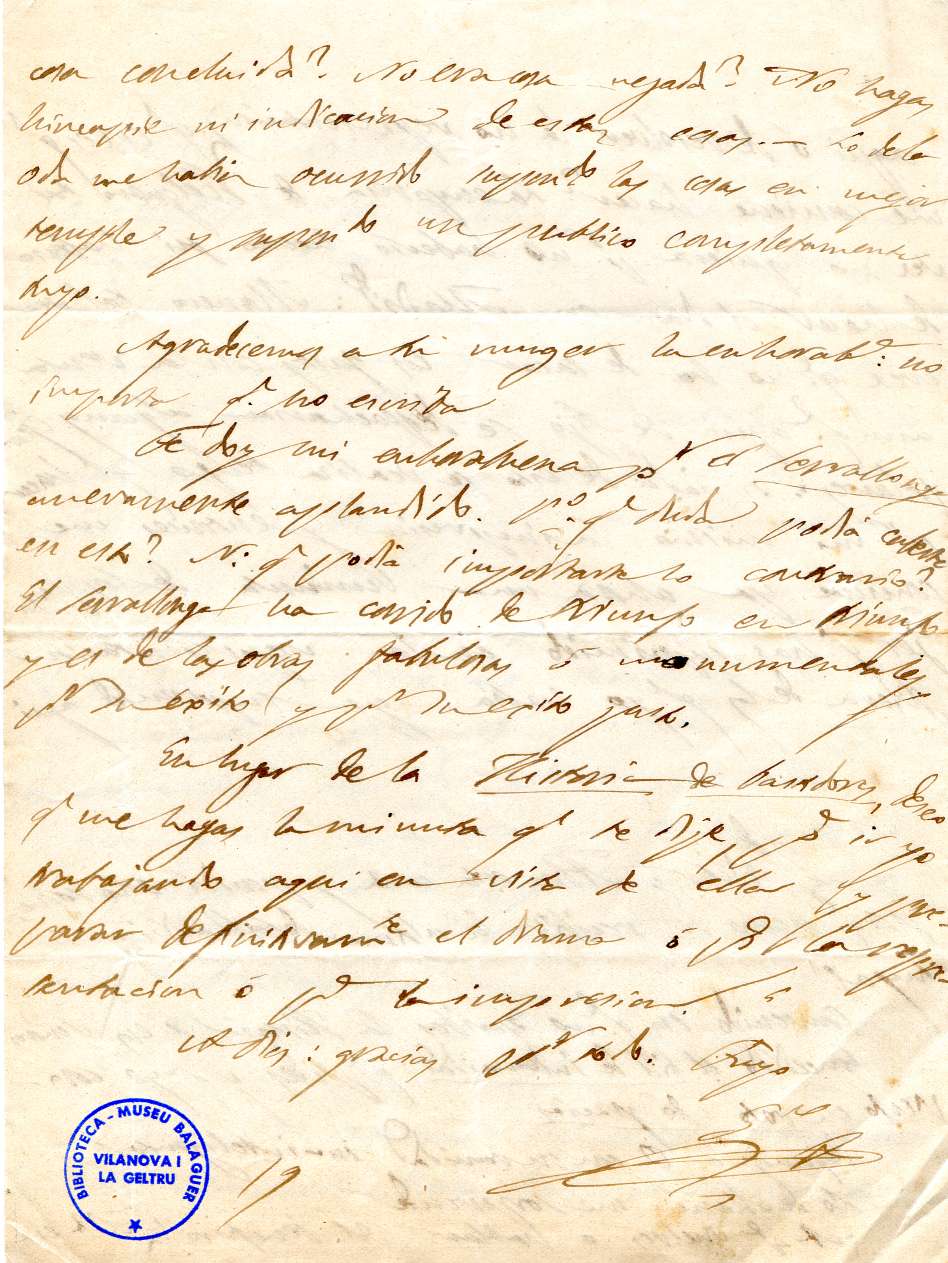 cosa concluida? No era cosa negada? No hagas
hincapie ni indicacion de estas cosas. — Lo de la
oda me habia ocurrido supondo las cosas en mejor
temple y supondo un publico completamente
tuyo.
Agradecemos a tu muger la enhorabª: no
importa q. no escriba
Te doy mi enhorabuena pr el Serrallonga
nuevamente aplaudido. po. q. duda podia
en esto? Ni q podia importarte lo contrario?
El Serrallonga ha corrido de triunfo en triunfo
y es de las obras fabulosas ó monumentales
pr su exito y pr su exito justo.
En lugar de la Historia de bastidores, deseo
q me hagas la minuta q te dije, pª ir yo
trabajando aqui en vista de ella y pre-
parar definitivamte el drama ó pª la repre-
sentacion ó pª la impresion.
A dios: gracias pr todo. Tuyo
19
BIBLIOTECA - MUSEU BALAGUER
VILANOVA I
LA GELTRU